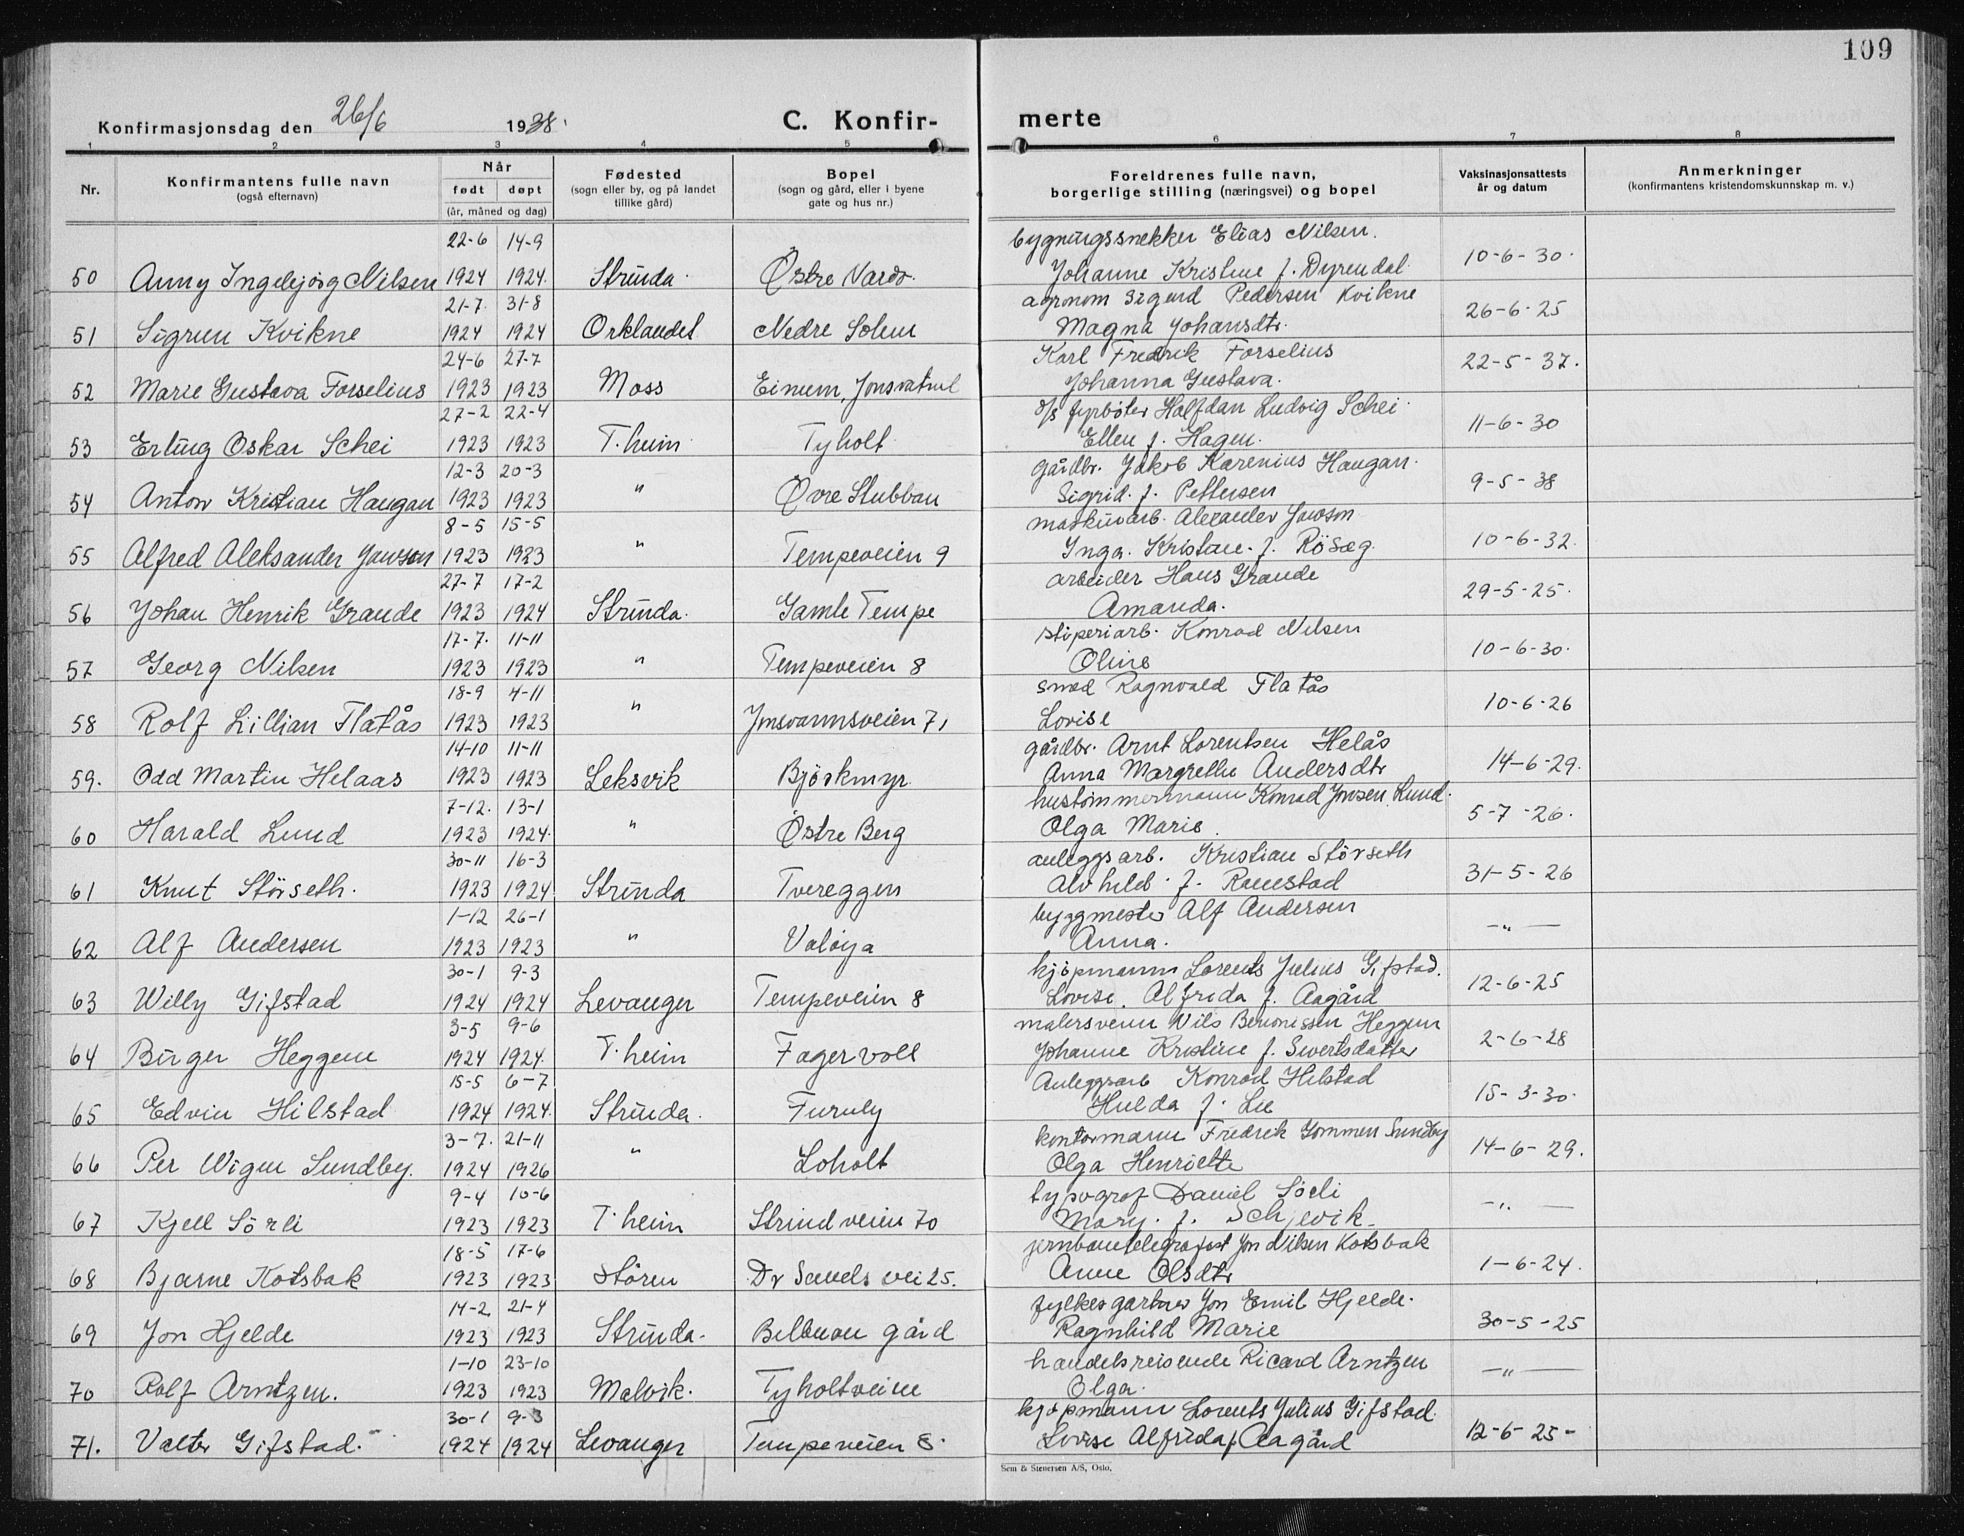 109
Konfirmasjonsdag den 26/6 1938.
C. Konfir-
merte
1 2 3 4 5 6 7 8
Nr.
Konfirmantens fulle navn
(også efternavn)
Når
født døpt
(år, måned og dag)
Fødested
(sogn eller by, og på landet
tillike gård)
Bopel
(sogn og gård, eller i byene
gate og hus nr.)
Foreldrenes fulle navn,
borgerlige stilling (næringsvei) og bopel
Vaksinasjonsattests
år og datum
Anmerkninger
(konfirmantens kristendomskunnskap m. v.)
22-6 14-9 bygningssnekker Elias Nilsen.
50 Anny Ingebjørg Nilsen 1924 1924. Strinda. Østre Vardo. Johanne Kristine f. Dyrendal 10-6-30.
21-7. 31-8 agronom Sigurd Pedersen Kvikne
51 Sigrun Kvikne 1924 1924 Orklandet Nedre Solem Magna Johansdtr. 26-6-25
24-6 27-7 Karl Fredrik Forselius
52 Marie Gustava Forselius 1923 1923 Moss Einum, Jonsvatnet Johanna Gustava. 22-5-37.
27-2 22-4 o/s fyrbøter Halfdan Ludvig Schei.
53 Erling Oskar Schei 1923 1923 T.heim Tyholt Ellen f. Hagen. 11-6-30
12-3 20-3 gårdbr. Jakob Karenius Haugan.
54 Anton Kristian Haugan 1923 1923 " Øvre Stubban Sigrid. f. Pettersen 9-5-38
8-5 15-5 maskinarb. Alexander
55 Alfred Aleksander 1923 1923 " Tempeveien 9 Inga. Kristine. f. Røsæg. 10-6-32.
27-7 17-2 arbeider Hans Grande
56 Johan Henrik Grande 1923 1924 Strinda. Gamle Tempe Amanda. 29-5-25.
17-7. 11-11 støperiarb. Konrad Nilsen
57 Georg Nilsen 1923 1923 " Tempeveien 8 Oline 10-6-30.
18-9 4-11 smed Ragnvald Flatås
58 Rolf Lillian Flatås 1923 1923 " Jonsvannsveien 71 Lovise 10-6-26
14-10 11-11 gårdbr. Arnt Lorentsen Helås
59. Odd Martin Helaas 1923 1923 Leksvik Bjørkmyr. Anna Margrethe Andersdtr 14-6-29.
7-12. 13-1 hustømmermann Konrad Jonsen Lund.
60 Harald Lund 1923 1924. " Østre Berg Olga Marie. 5-7-26.
30-11 16-3 anleggsarb. Kristian Størseth
61 Knut Størseth. 1923 1924 Strinda Tvereggen Alvhild. f. Ramstad 31-5-26
1-12 26-1 byggmester Alf Andersen
62 Alf Andersen 1923 1923 " Valøya Anna. -"-
30-1 9-3 kjøpmann Lorents Julius Gifstad.
63 Willy Gifstad 1924 1924 Levanger Tempeveien 8 Lovise. Alfrida f. Aagård 12-6-25
3-5 9-6 malersvenn Nils Benonissen Heggem
64 Birger Heggem 1924 1924. T.heim Fagervoll Johanne Kristine f. Sivertsdatter 2-6-28
15-5 6-7 Anleggsarb Konrad Hilstad
65 Edvin Hilstad 1924 1924. Strinda. Furuly Hulda f. Lie 15-3-30.
3-7. 21-11 kontormann Fredrik Gommen Sundby
66 Per Wigen Sundby. 1924 1926 " Loholt Olga Henriette 14-6-29.
9-4 10-6 typograf Daniel Sörli
67 Kjell Sörli 1923 1923 T.heim Strindveien 70 Mary. f. Schjevik. -"-
18-5 17-6 jernbanetelegrafist Jon Nilsen Kotsbak
68 Bjarne Kotsbak 1923 1923 Stören Dr Sands vei 25. Anne Olsdtr 1-6-24.
14-2 21-4 fylkesgartner Jon Emil Hjelde.
69 Jon Hjelde 1923 1923 Strinda. Belbuan gård Ragnhild Marie 30-5-25
1-10 23-10 handelsreisende Ricard Arntzen
70 Rolf Arntzen. 1923 1923 Malvik. Tyholtveien Olga. -"-
30-1 9-3 kjøpmann Lorents Julius Gifstad.
71. Valter Gifstad. 1924 1924 Levanger Tempeveien 8. Lovise Alfrida f. Aagård 12-6-25-
Sem & Stenersen A/S, Oslo.